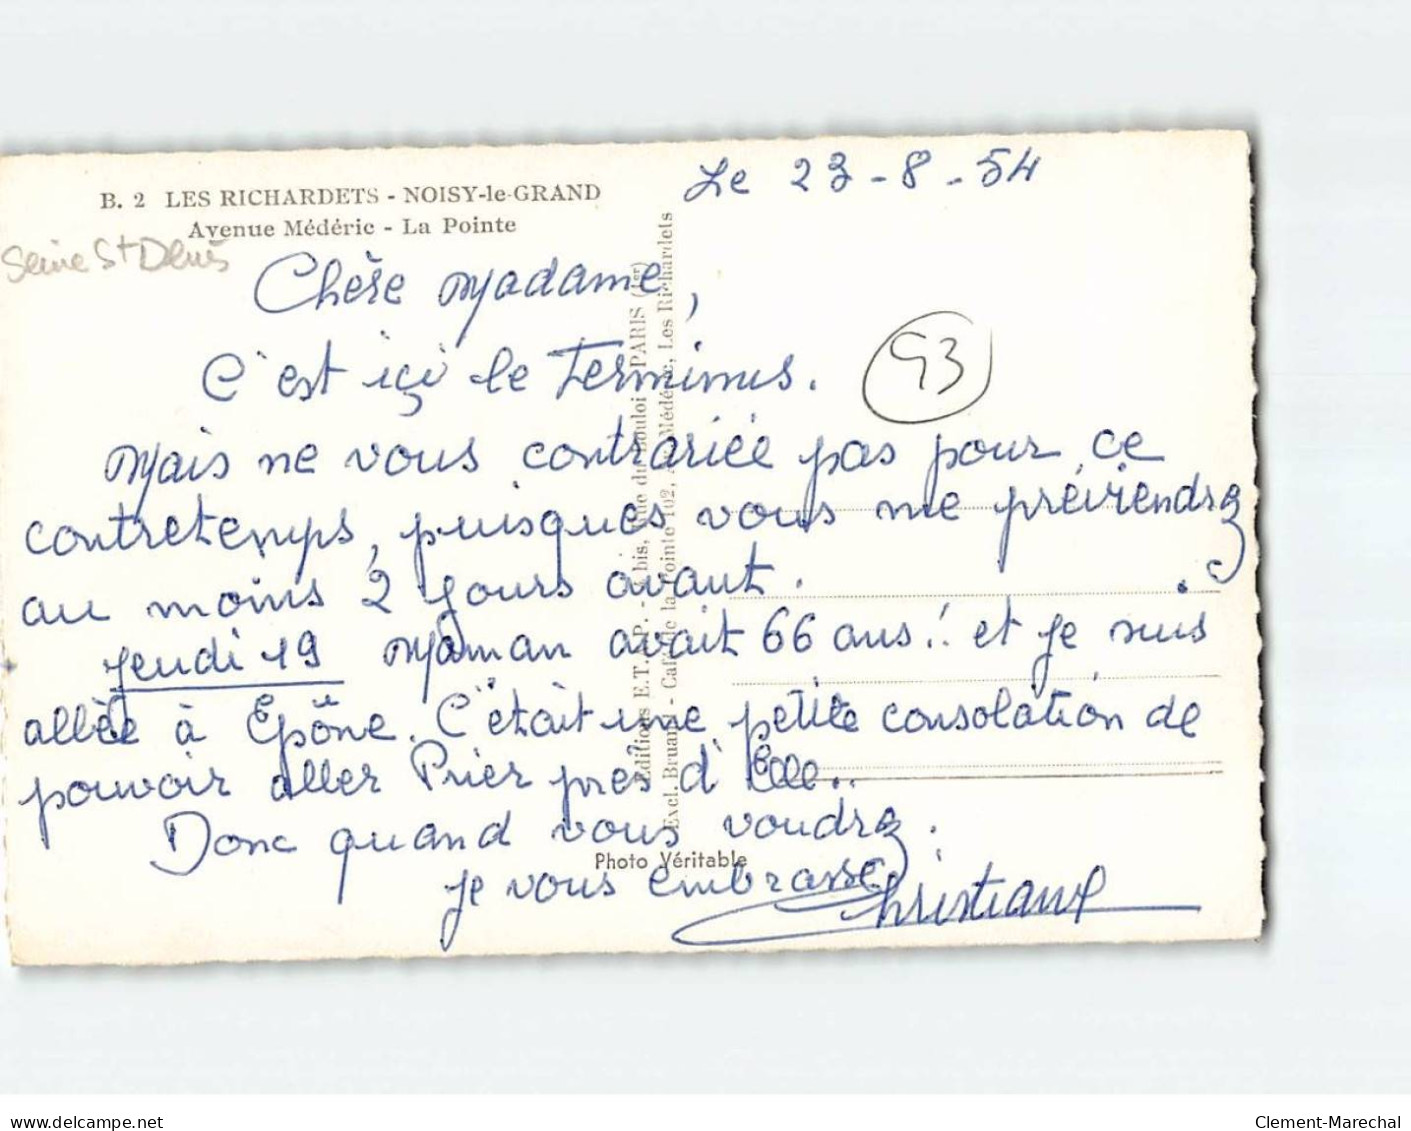 B. 2 LES RICHARDETS - NOISY-le-GRAND
Avenue Médéric - La Pointe
Seine St Denis
Le 23-8-54
Chère Madame,
C'est içi le Terminus.
93
Mais ne vous contrariée pas pour ce
contretemps, puisques vous me préviendrez
au moins 2 jours avant.
Jeudi 19 Maman avait 66 ans!! et je suis
allée à Epône. C'était une petite consolation de
pouvoir aller Prier près d'Elle..
Donc quand vous voudrez.
Je vous embrasse
Christiane
Editions E.T.P. - bis, Rue du Bouloi PARIS (1er)
Excl. Bruant - Café de la Pointe 102, Av. Médéric, Les Richardets
Photo Véritable
delcampe.net
Clement-Marechal